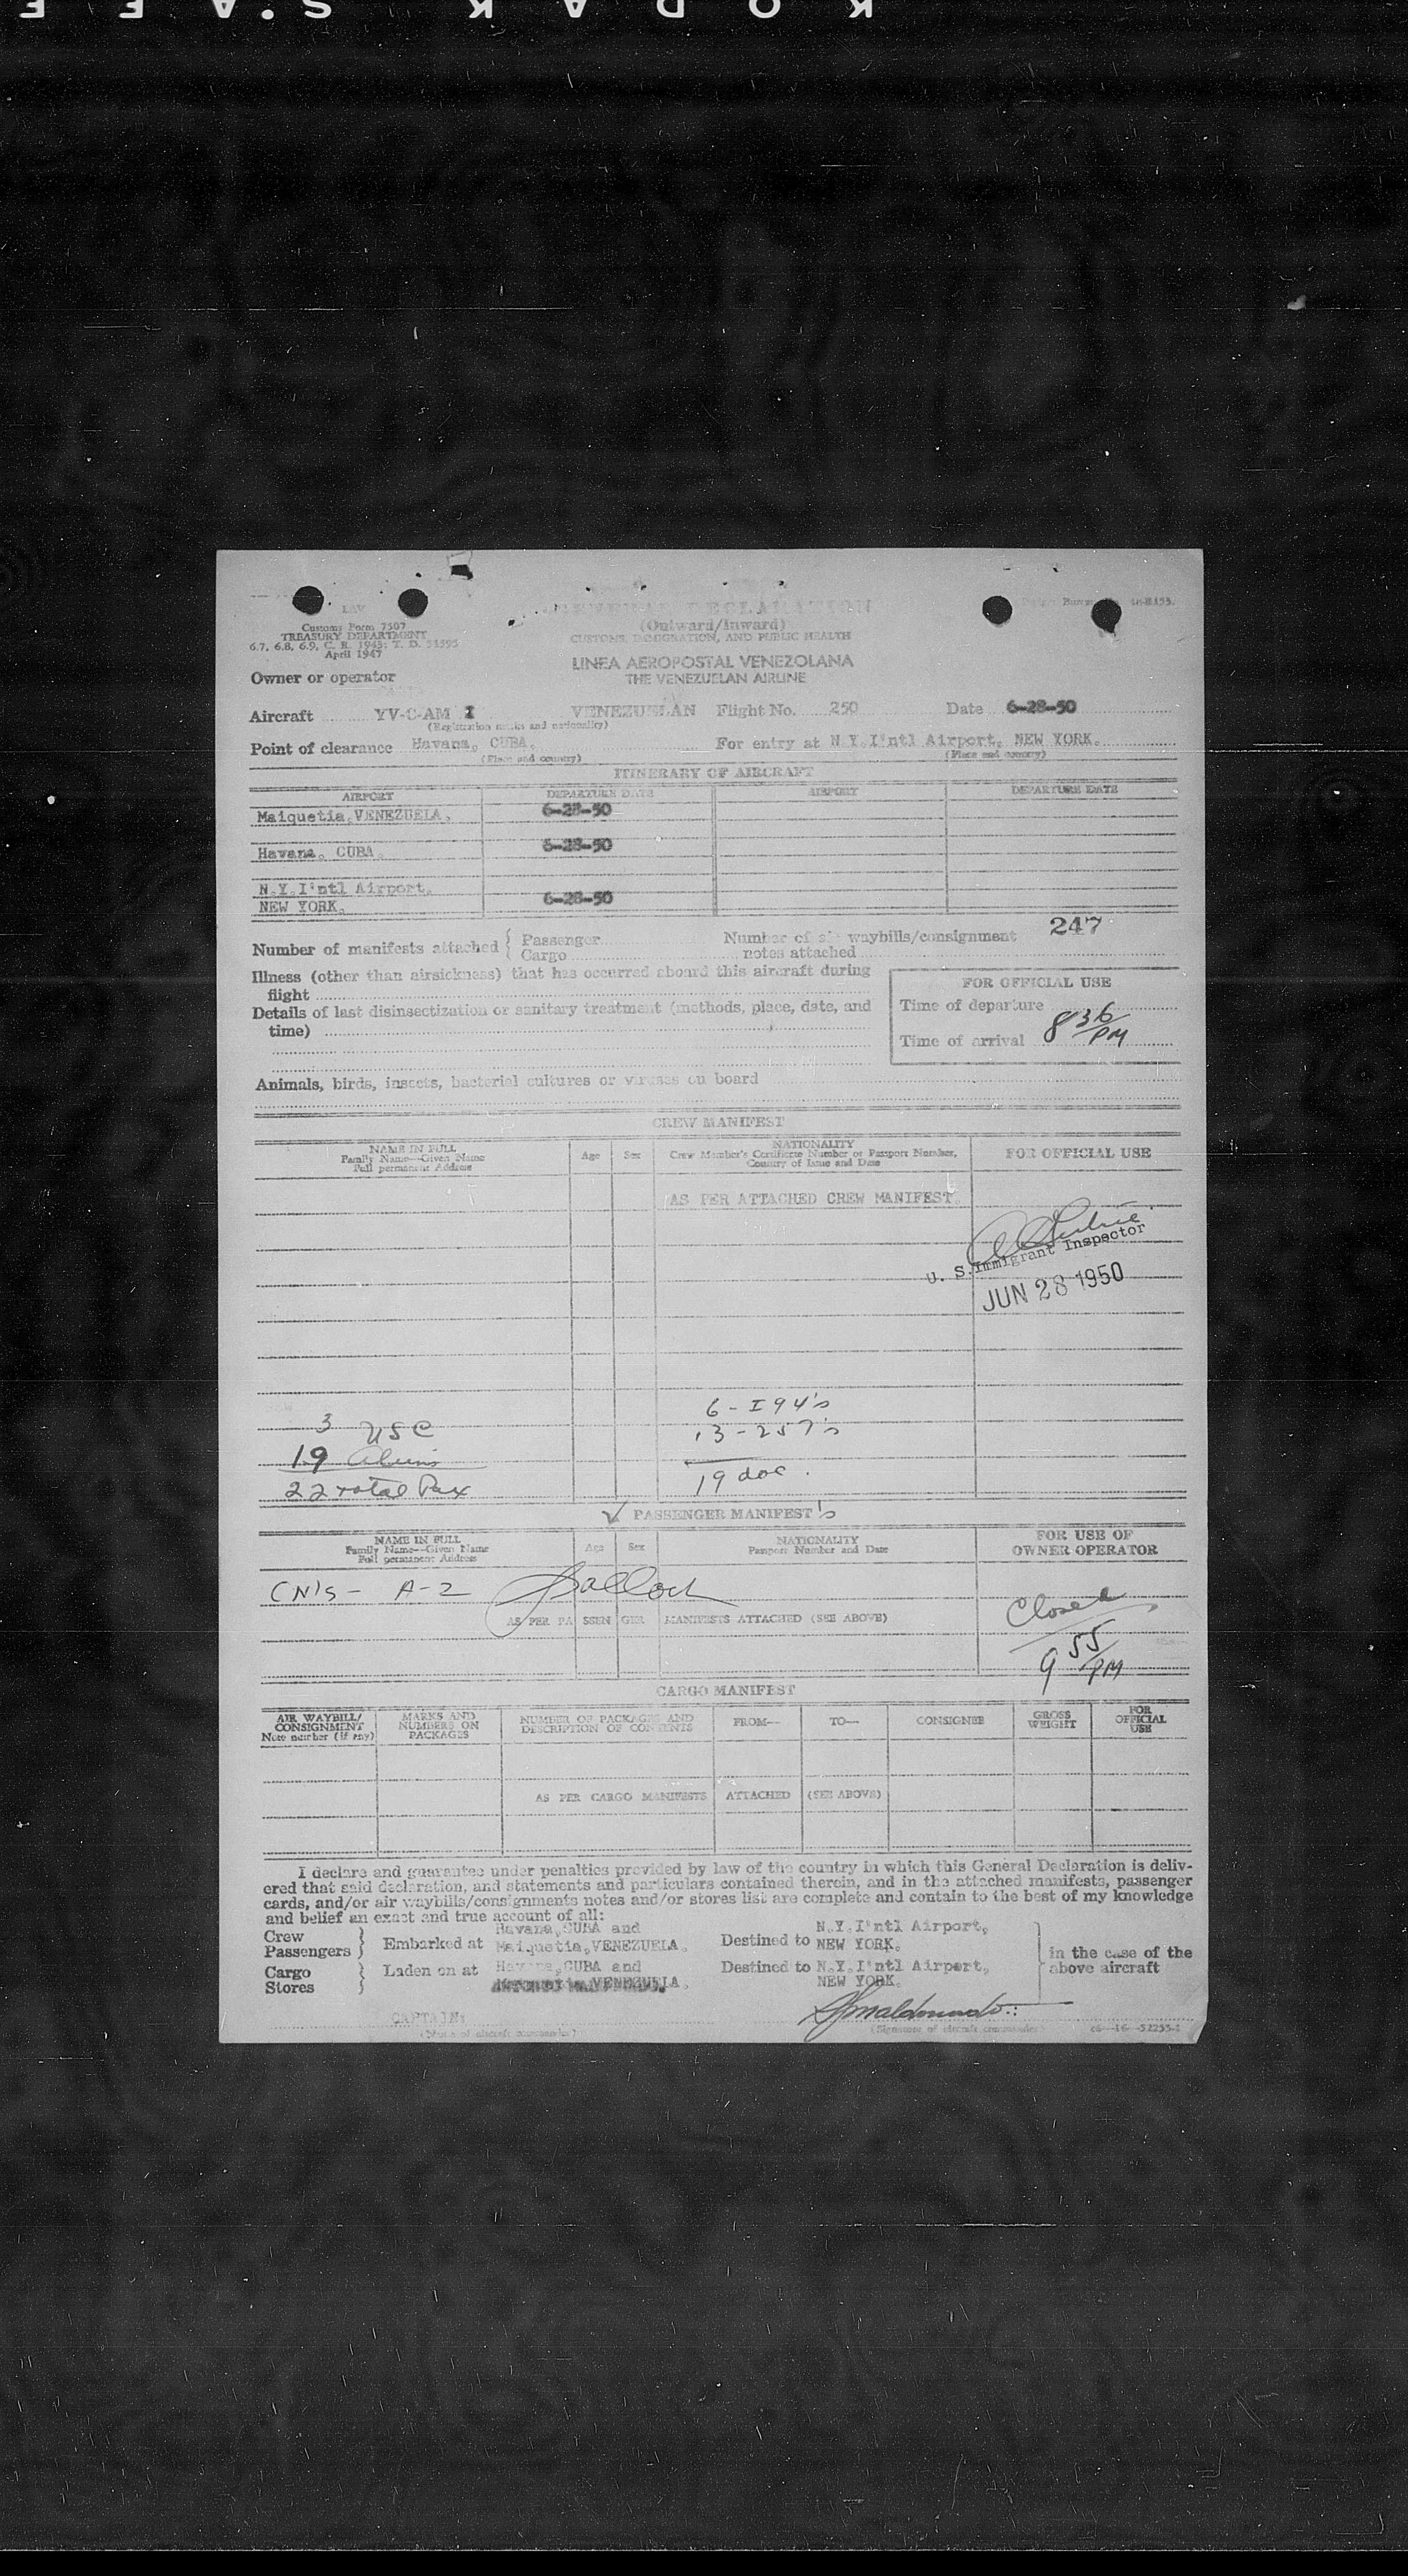 KODAK S.A FE
LAV
Customs Form 7507
TREASURY DEPARTMENT
6.7, 6.8, 6.9, C. R. 1943; T. D. 51595
April 1947
GENERAL DECLARATION
(Outward/Inward)
CUSTOMS, IMMIGRATION, AND PUBLIC HEALTH
LINEA AEROPOSTAL VENEZOLANA
THE VENEZUELAN AIRLINE
Owner or operator
Aircraft YV-C-AM I VENEZUELAN Flight No. 250 Date 6-28-50
(Registration marks and nationality)
Point of clearance Havana, CUBA. For entry at N.Y.I'ntl Airport, NEW YORK.
(Place and country) (Place and country)
ITINERARY OF AIRCRAFT
AIRPORT DEPARTURE DATE AIRPORT DEPARTURE DATE
Maiquetia, VENEZUELA. 6-28-50
Havana, CUBA. 6-28-50
N.Y.I'ntl Airport.
NEW YORK. 6-28-50
247
Number of manifests attached { Passenger
Cargo
Number of air waybills/consignment
notes attached
Illness (other than airsickness) that has occurred aboard this aircraft during
flight
Details of last disinsectization or sanitary treatment (methods, place, date, and
time)
FOR OFFICIAL USE
Time of departure
Time of arrival 8 36 PM
Animals, birds, insects, bacterial cultures or viruses on board
CREW MANIFEST
NAME IN FULL
Family Name—Given Name
Full permanent Address
Age Sex
NATIONALITY
Crew Member's Certificate Number or Passport Number,
Country of Issue and Date
FOR OFFICIAL USE
AS PER ATTACHED CREW MANIFEST
U. S. Immigrant Inspector
JUN 28 1950
3 USC
19 aliens
22 total Pax
6 - I94's
13 - 257's
19 doc.
PASSENGER MANIFEST's
NAME IN FULL
Family Name—Given Name
Full permanent Address
Age Sex
NATIONALITY
Passport Number and Date
FOR USE OF
OWNER OPERATOR
CN's - A-2
AS PER PASSENGER MANIFESTS ATTACHED (SEE ABOVE)
Closed
9 55 PM
CARGO MANIFEST
AIR WAYBILL/
CONSIGNMENT
Note number (if any)
MARKS AND
NUMBERS ON
PACKAGES
NUMBER OF PACKAGES AND
DESCRIPTION OF CONTENTS
FROM— TO— CONSIGNEE
GROSS
WEIGHT
FOR
OFFICIAL
USE
AS PER CARGO MANIFESTS ATTACHED (SEE ABOVE)
I declare and guarantee under penalties provided by law of the country in which this General Declaration is deliv-
ered that said declaration, and statements and particulars contained therein, and in the attached manifests, passenger
cards, and/or air waybills/consignments notes and/or stores list are complete and contain to the best of my knowledge
and belief an exact and true account of all:
Crew
Passengers } Embarked at Havana, CUBA and
Maiquetia, VENEZUELA.
Destined to N.Y.I'ntl Airport,
NEW YORK.
Cargo
Stores } Laden on at Havana, CUBA and
VENEZUELA.
Destined to N.Y.I'ntl Airport,
NEW YORK.
in the case of the
above aircraft
CAPTAIN:
(Name of aircraft commander)
(Signature of aircraft commander)